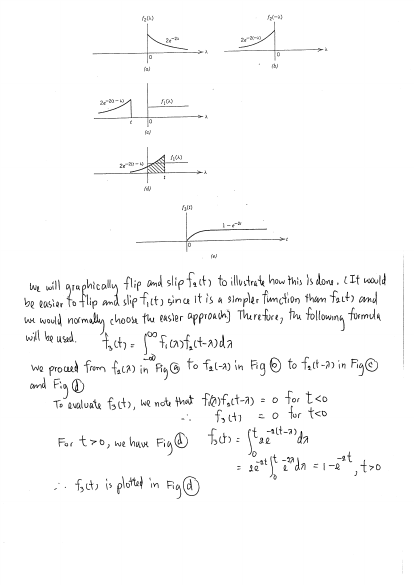 f₂(λ)
2e⁻²λ
λ
0
(a)
f₂(-λ)
λ
0
(b)
f₁(λ)
λ
t
0
(c)
f₁(λ)
λ
t
(d)
f₃(t)
1-e⁻²ᵗ
t
0
(e)
We will graphically flip and slip f₂(t) to illustrate how this is done. (It would
be easier to flip and slip f₁(t) since it is a simpler function than f₂(t) and
we would normally choose the easier approach) Therefore, the following formula
will be used. f₃(t) = ∫₋∞^∞ f₁(λ)f₂(t-λ)dλ
We proceed from f₂(λ) in Fig ⓐ to f₂(-λ) in Fig ⓑ to f₂(t-λ) in Fig ⓒ
and Fig ⓓ
To evaluate f₃(t), we note that f₁(λ)f₂(t-λ) = 0 for t<0
∴ f₃(t) = 0 for t<0
For t>0, we have Fig ⓓ f₃(t) = ∫₀ᵗ 2e^-2(t-λ) dλ
∴ f₃(t) is plotted in Fig ⓓ